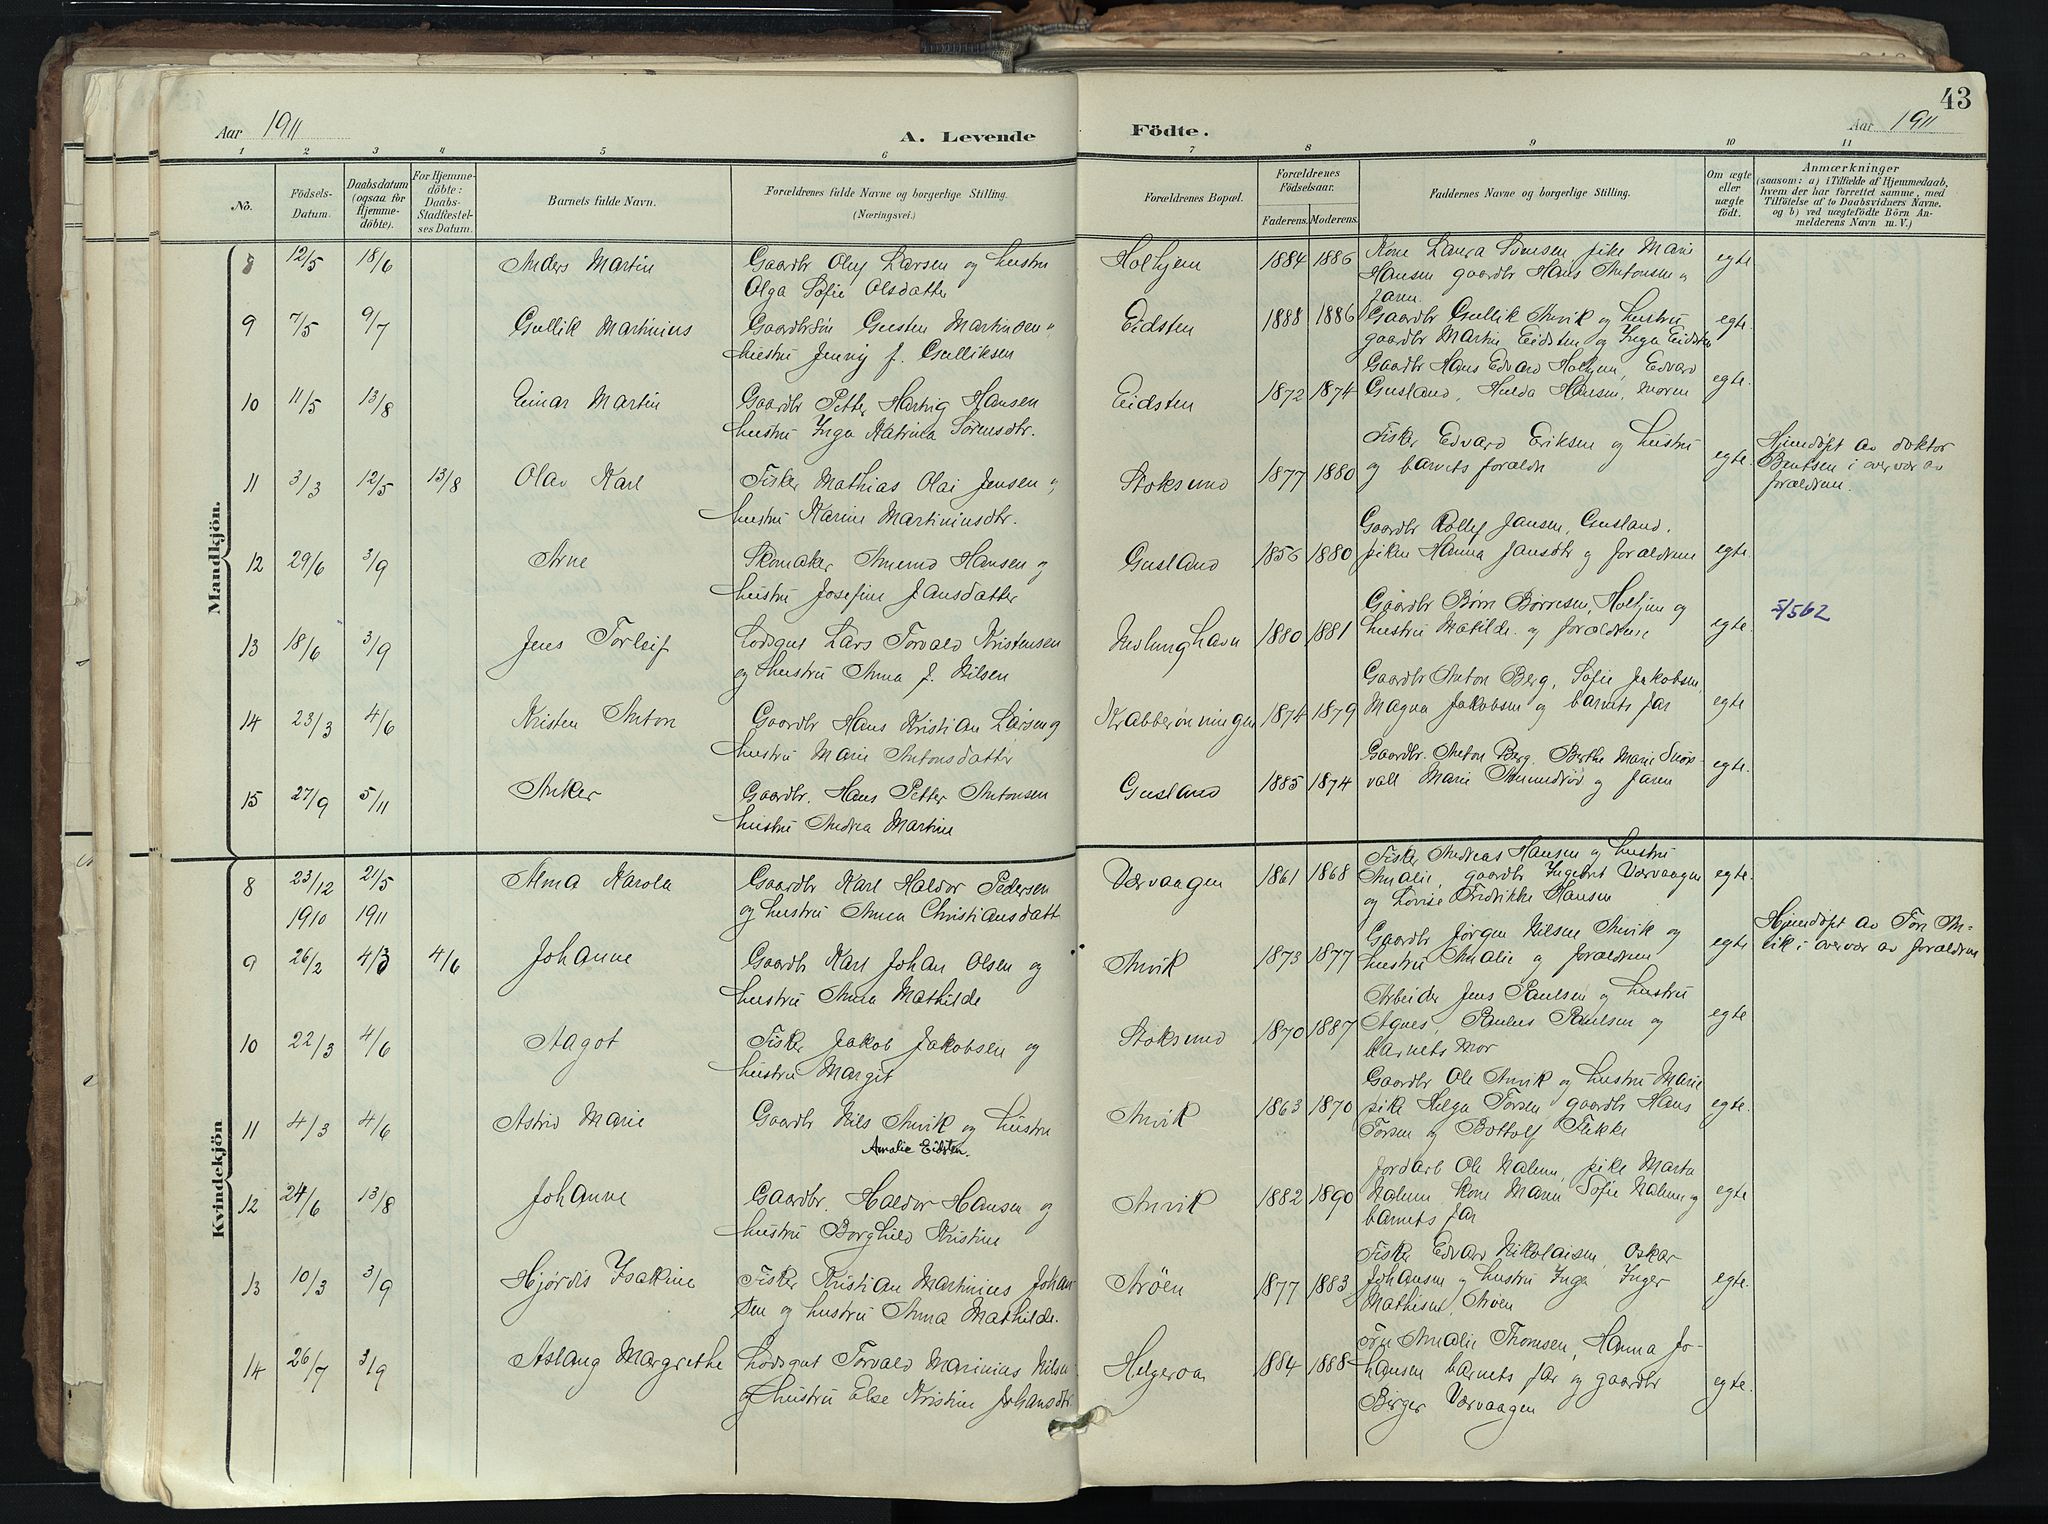 43
Aar 1911
A. Levende
Födte.
Aar 1911
1 2 3 4 5 6 7 8 9 10 11
No.
Födsels-Datum.
Daabsdatum (ogsaa for Hjemme-döbte).
For Hjemme-döbte: Daabs-Stadfæstel-ses Datum.
Barnets fulde Navn.
Forældrenes fulde Navne og borgerlige Stilling.
(Næringsvei.)
Forældrenes Bopæl.
Forældrenes Födselsaar.
Faderens. Moderens.
Faddernes Navne og borgerlige Stilling.
Om ægte eller uægte födt.
Anmærkninger
(saasom: a) i Tilfælde af Hjemmedaab,
hvem der har forrettet samme, med
Tilföielse af to Daabsvidners Navne,
og b) ved uægtefödte Börn An-
melderens Navn m. V.)
Mandkjön.
8 12/5 18/6 Anders Martin Gaardbr Oluf Larsen og hustru Holhjem 1884 1886 Kone Laura Svensen pike Marie egte
Olga Sofie Olsdatter Hansen gaardbr Hans Antonsen og
faren.
9 7/5 9/7 Gullik Martinius Gaardbrsön Gusten Martinsen og Eidsten 1888 1886 Gaardbr Gullik Anvik og hustru egte.
hustru Jenny f. Gulliksen gaardbr Martin Eidsten og Inga Eidsten
Gaardbr Hans Edvard Holhjem, Edvard
10 11/5 13/8 Einar Martin Gaardbr Petter Hartvig Hansen Eidsten 1872 1874 Gusland, Hulda Hansen, moren egte.
hustru Inga Katrina Sörensdtr.
Fisker Edvard Eriksen og hustru Hjemdöpt av doktor
11 3/3 12/5 13/8 Olav Karl Fisker Mathias Olai Jensen og Stoksund 1877 1880 og barnets foraldre egte. Bentsen i overvær av
hustru Karine Martiniusdtr. foraldrene.
Gaardbr Rollef Jansen, Gusland,
12 29/6 3/9 Arne Skomaker Amund Hansen og Gusland 1856 1880 piken Hanna Jansdtr og foraldrene egte.
hustru Josefine Jansdatter
Gaardbr Börre Börresen, Holhjem og 5/562
13 18/6 3/9 Jens Torleif Lodsgut Lars Torvald Kristensen Nevlunghavn 1880 1881 hustru Matilde. og foraldrene egte.
og hustru Anna J. Nilsen
Gaardbr Anton Berg, Sofie Jakobsen,
14 23/3 4/6 Kristen Anton Gaardbr Hans Kristian Larsen og Krabberönningen 1874 1879 Magna Jakobsen og barnets far egte.
hustru Marie Antonsdatter
Gaardbr. Anton Berg. Berthe Marie
15 27/9 5/11 Anker Gaardbr. Hans Petter Antonsen Gusland 1885 1874 vall Marie Amundröd og faren egte.
hustru Andrea Martine
Kvindekjön
Fisker Andreas Hansen og hustru
8 23/12 1910 21/5 1911 Alma Karola Gaardbr Karl Haldor Pedersen Værvaagen 1861 1868 Amalie, gaardbr Ingebrit Værvaagen egte.
og hustru Anna Christiansdatt og Lovise Fridrikke Hansen
Gaardbr Jörgen Nilsen Anvik og Hjemdöpt av Tor An-
9 26/2 4/3 4/6 Johanne Gaardbr Karl Johan Olsen og Anvik 1873 1877 hustru Amalie og foraldrene egte vik i overvær av foraldrene
hustru Anna Mathilde
Arbeider Jens Paulsen og hustru
10 22/3 4/6 Aagot Fisker Jakob Jakobsen og Stoksund 1870 1887 Agnes, Paulus Paulsen og egte
hustru Margit barnets mor
Gaardbr Ole Anvik og hustru Marie
11 4/3 4/6 Astrid Marie Gaardbr Nils Anvik og hustru Anvik 1863 1870 pike Helga Torsen, gaardbr Hans egte.
Amalie Eidsten. Torsen og Bottolf Flikke
Jordarb Ole Nalum, pike Marta
12 24/6 13/8 Johanne Gaardbr. Haldor Hansen og Anvik 1882 1890 Nalum, kone Marie Sofie Nalum og egte
hustru Borghild Kristine barnets far
Fisker Edvard Nikolaisen, Oskar
13 10/3 3/9 Hjördis Isakine Fisker Kristian Martinius Johan Aröen 1877 1883 Johansen og hustru Inga Inger egte.
sen og hustru Anna Mathilde. Mathisen, Aröen
Amalie Thomsen, Hanna Jo-
14 26/7 3/9 Aslaug Margrethe Lodsgut Torvald Marinius Nilsen Helgeroa 1884 1888 hansen barnets far og gaardbr egte.
og hustru Else Kristine Johansdtr. Birger Værvaagen